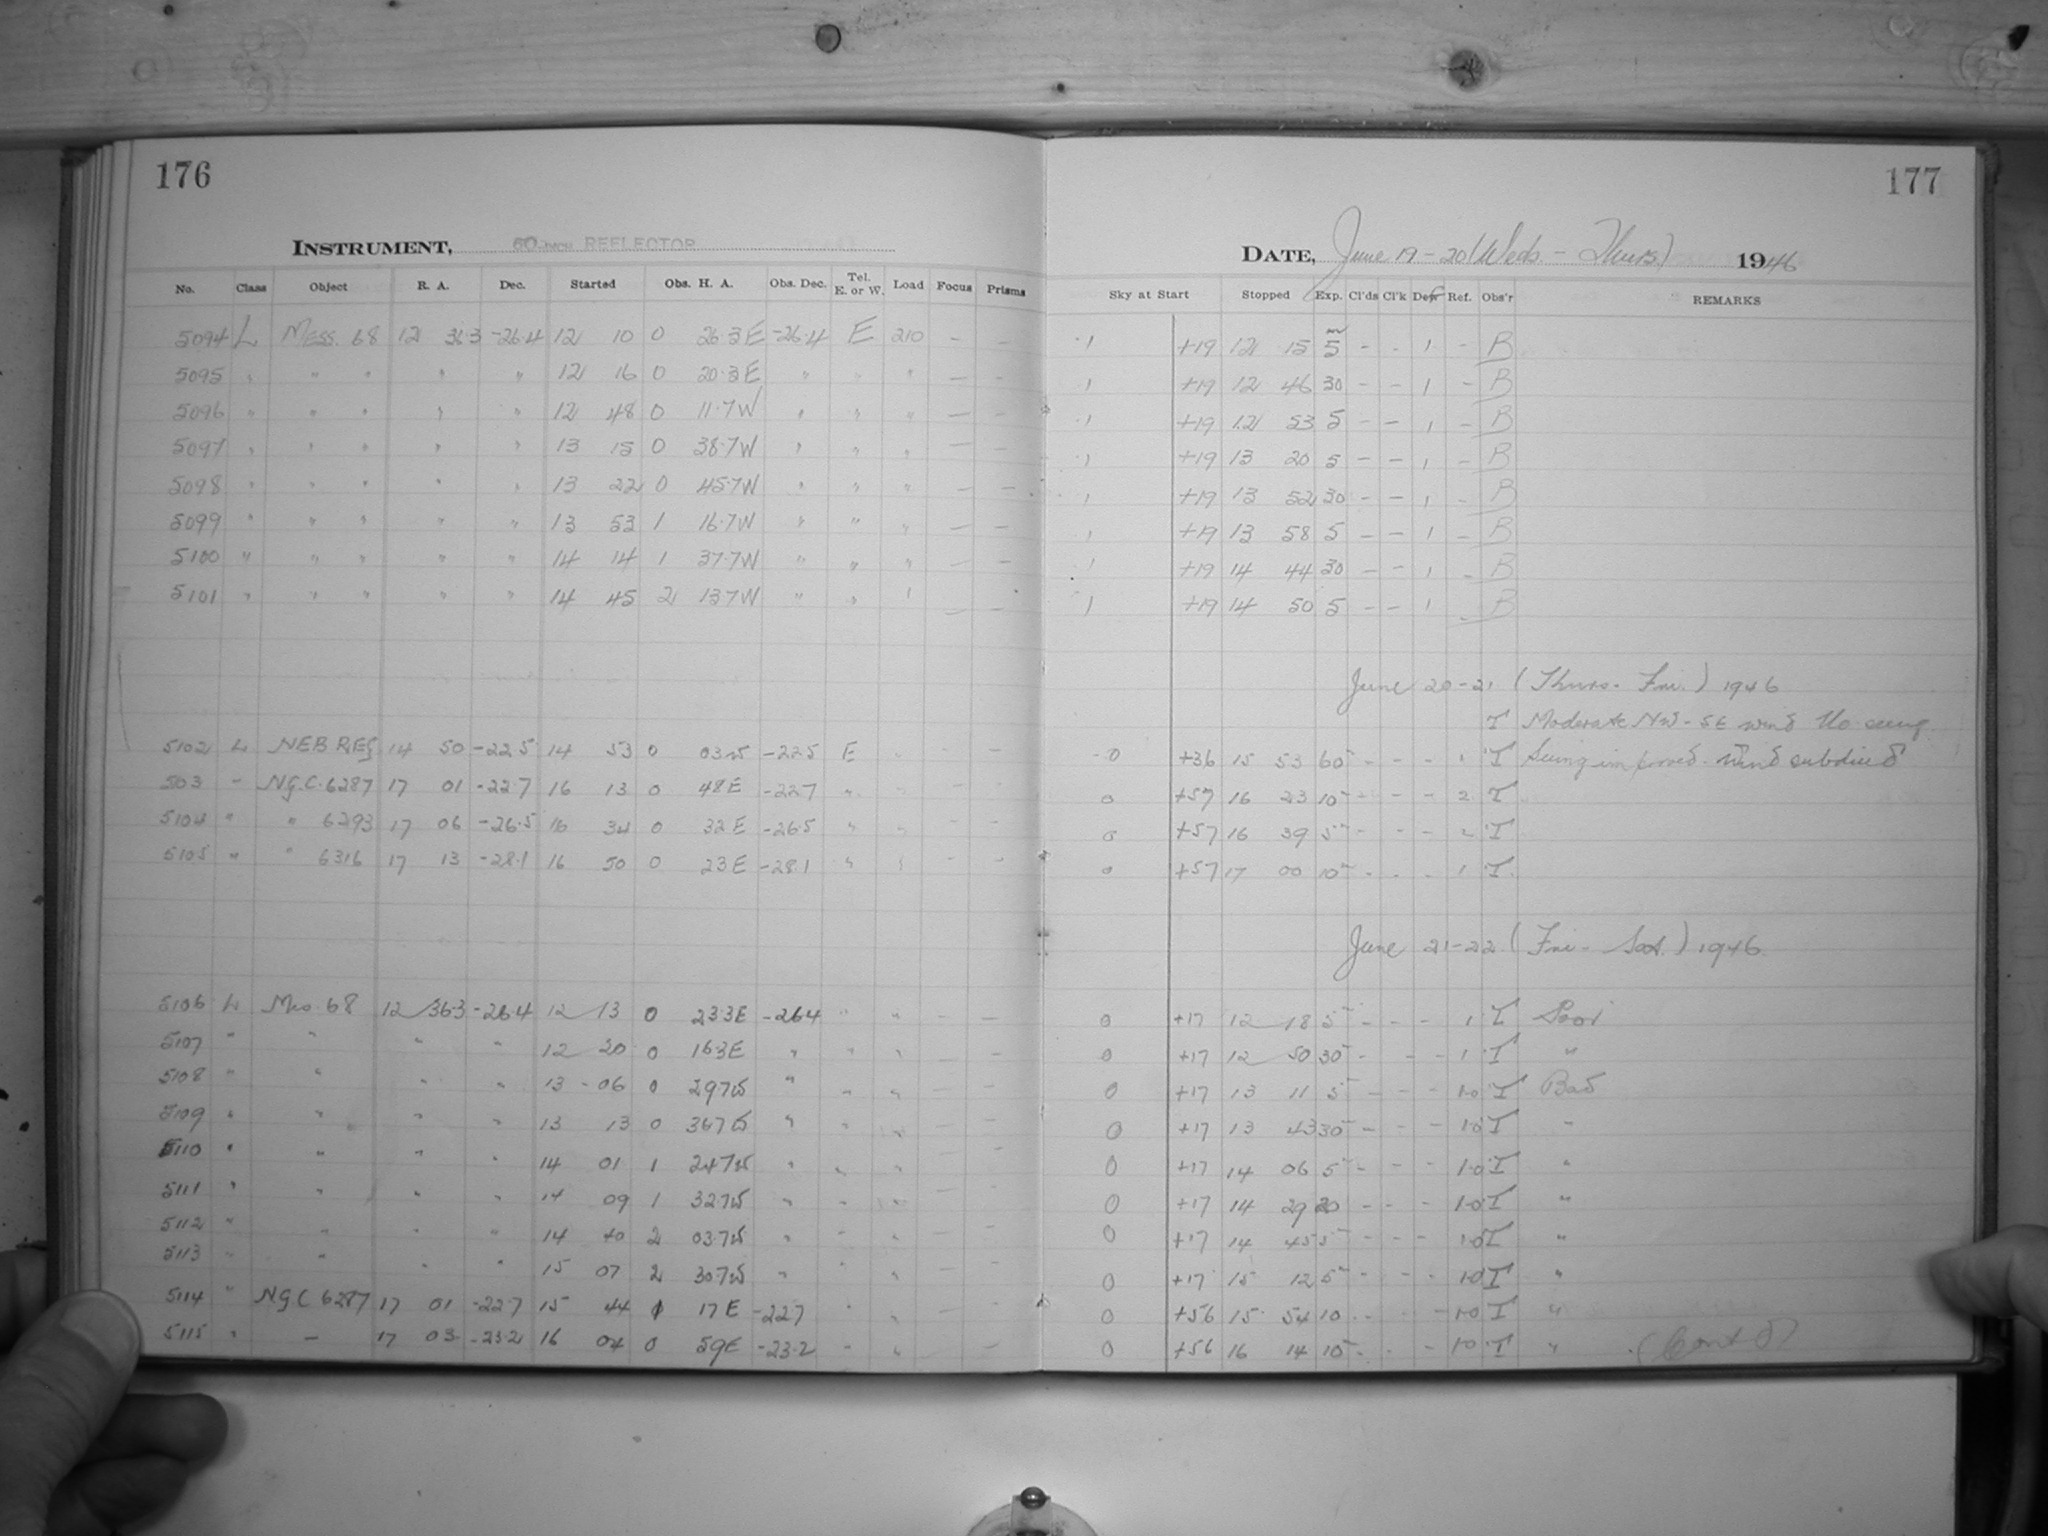 176
INSTRUMENT, 60-INCH REFLECTOR
No. Class Object R. A. Dec. Started Obs. H. A. Obs. Dec. Tel. E. or W. Load Focus Prisms
5094 L Mess. 68 12 36.3 -26.4 12 10 0 26.3 E -26.4 E 210 - -
5095 " " " " " 12 16 0 20.3 E " " " - -
5096 " " " " " 12 48 0 11.7 W " " " - -
5097 " " " " " 13 15 0 38.7 W " " " -
5098 " " " " " 13 22 0 45.7 W " " " - -
5099 " " " " " 13 53 1 16.7 W " " " - -
5100 " " " " " 14 14 1 37.7 W " " " - -
5101 " " " " " 14 45 2 13.7 W " " " - -
5102 L NEB REG 14 50 -22.5 14 53 0 03 W -22.5 E " - -
503 - NGC. 6287 17 01 -22.7 16 13 0 48 E -22.7 " " - -
5104 " " 6293 17 06 -26.5 16 34 0 32 E -26.5 " " - -
5105 " " 6316 17 13 -28.1 16 50 0 23 E -28.1 " " - -
5106 L Mes. 68 12 36.3 -26.4 12 13 0 23.3E -26.4 " " - -
5107 " " " " 12 20 0 16.3E " " " - -
5108 " " " " 13 - 06 0 29.7W " " " - -
5109 " " " " 13 13 0 36.7W " " " - -
5110 " " " " 14 01 1 24.7W " " " - -
5111 " " " " 14 09 1 32.7W " " " - -
5112 " " " " 14 40 2 03.7W " " " - -
5113 " " " " 15 07 2 30.7W " " - -
5114 " NGC 6287 17 01 -22.7 15 44 1 17 E -22.7 " " - -
5115 " - 17 03 -23.2 16 04 0 59E -23.2 " " -
177
DATE, June 19-20 (Weds. - Thurs) 1946
Sky at Start Stopped Exp. Cl'ds Cl'k Dew Ref. Obs'r REMARKS
1 +19 12 15 5 - - 1 - B
1 +19 12 46 30 - - 1 - B
1 +19 12 53 5 - - 1 - B
1 +19 13 20 5 - - 1 - B
1 +19 13 52 30 - - 1 - B
1 +19 13 58 5 - - 1 - B
1 +19 14 44 30 - - 1 - B
1 +19 14 50 5 - - 1 - B
June 20-21 (Thurs. - Fri.) 1946
T Moderate NW - SE wind No seeing
-0 +36 15 53 60 - - - 1 T Seeing improved - wind subdued
0 +57 16 23 10 - - - 2 T
0 +57 16 39 5 - - - 2 T
0 +57 17 00 10 - - - 1 T.
June 21-22 (Fri - Sat.) 1946
0 +17 12 18 5 - - - 1 T Poor
0 +17 12 50 30 - - - 1 T "
0 +17 13 11 5 - - - 1.0 T Bad
0 +17 13 43 30 - - - 1.0 T "
0 +17 14 06 5 - - - 1.0 T "
0 +17 14 29 20 - - - 1.0 T "
0 +17 14 45 5 - - - 1.0 T "
0 +17 15 12 5 - - - 1.0 T "
0 +56 15 54 10 - - - 1.0 T "
0 +56 16 14 10 - - - 1.0 T " (Cont'd)